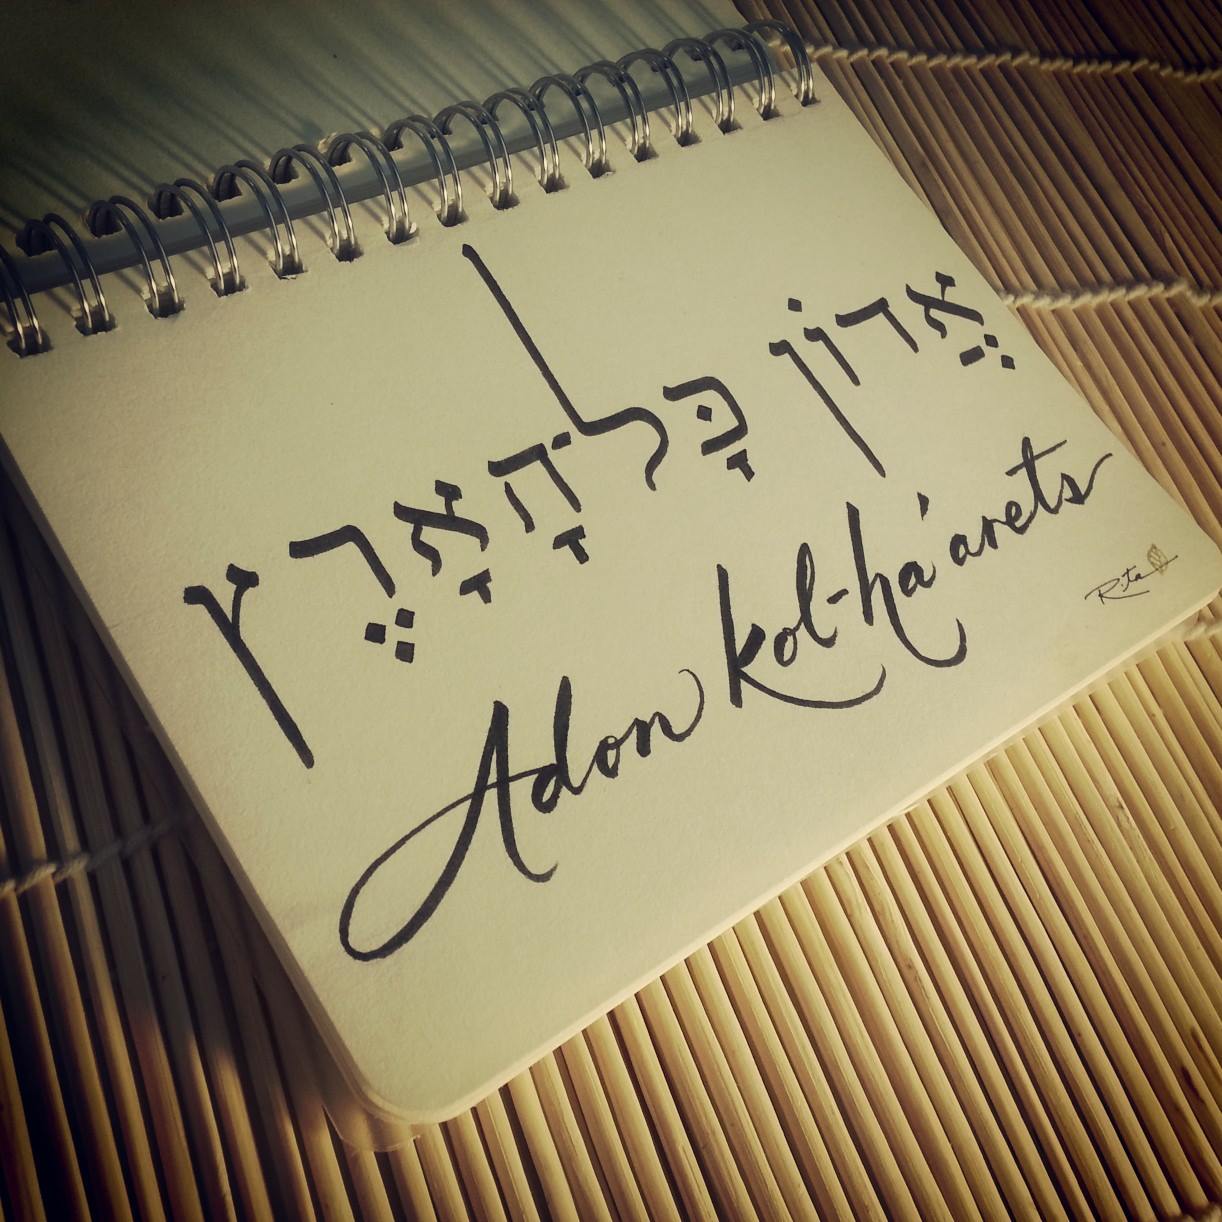 אֲדוֹן כָּל־הָאָרֶץ
Adon kol-ha'arets
Rita